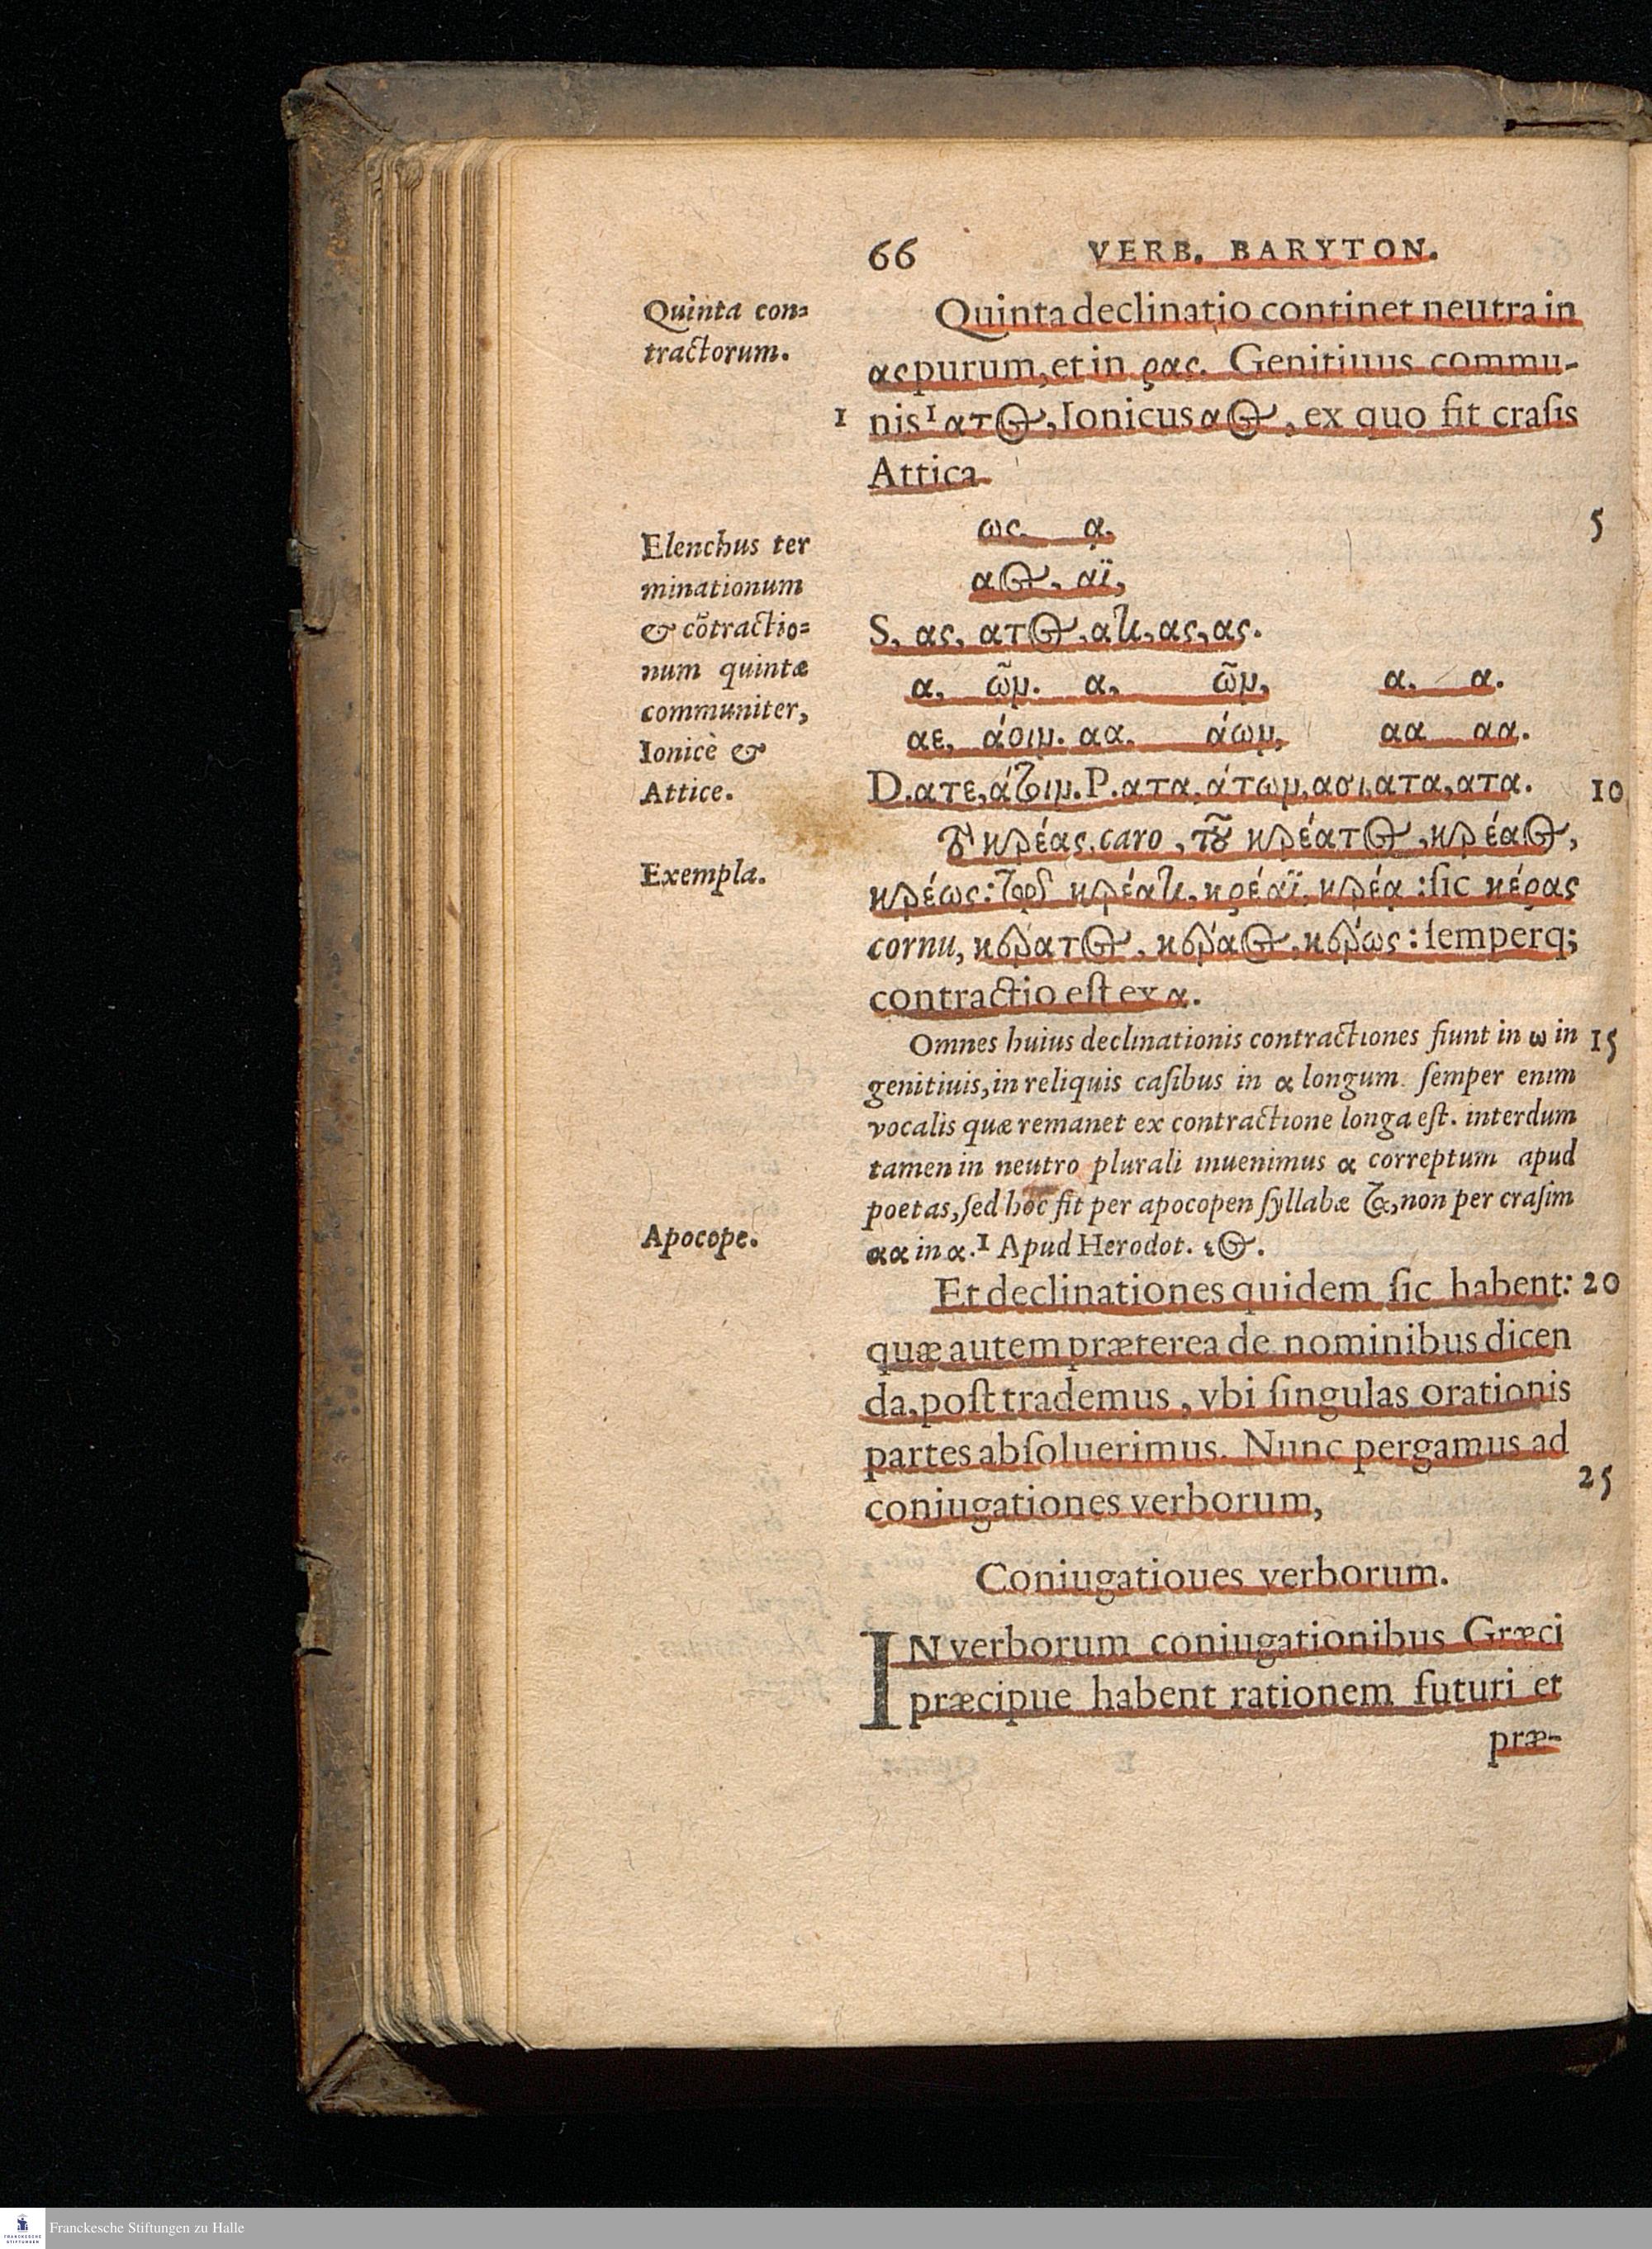 66 VERB. BARYTON.
Quinta con=
tractorum.
Quinta declinatio continet neutra in
ας purum, et in ρας. Genitiuus commu-
1 nis¹ ατος, Ionicus αος, ex quo fit craſis
Attica
ως. ᾳ. 5
αος, αϊ,
S, ας, ατος, ατι, ας, ας.
α, ῶ̣ν. α, ῶν, α. α.
αε, άοιν. αα. άων, αα αα.
D. ατε, άτοιν. P. ατα, άτων, ασι, ατα, ατα. 10
Elenchus ter
minationum
& cõtractio=
num quintæ
communiter,
Ionicè &
Attice.
τὸ κρέας, caro, τοῦ κρέατος, κρέαος,
κρέως: τῷ κρέατι, κρέαϊ, κρέᾳ: ſic κέρας
cornu, κέρατος, κέραος, κέρως: ſemperq;
contractio eſt ex α.
Exempla.
Omnes huius declinationis contractiones fiunt in ω in 15
genitiuis, in reliquis caſibus in α longum. ſemper enim
vocalis quæ remanet ex contractione longa eſt. interdum
tamen in neutro plurali inuenimus α correptum apud
poetas, ſed hoc fit per apocopen ſyllabæ τα, non per craſim
αα in α.¹ Apud Herodot. εος.
Apocope.
Et declinationes quidem ſic habent: 20
quæ autem præterea de nominibus dicen
da, poſt trademus, vbi ſingulas orationis
partes abſoluerimus. Nunc pergamus ad
coniugationes verborum, 25
Coniugatioues verborum.
IN verborum coniugationibus Græci
præcipue habent rationem futuri et
præ-
Franckesche Stiftungen zu Halle
FRANCKESCHE
STIFTUNGEN